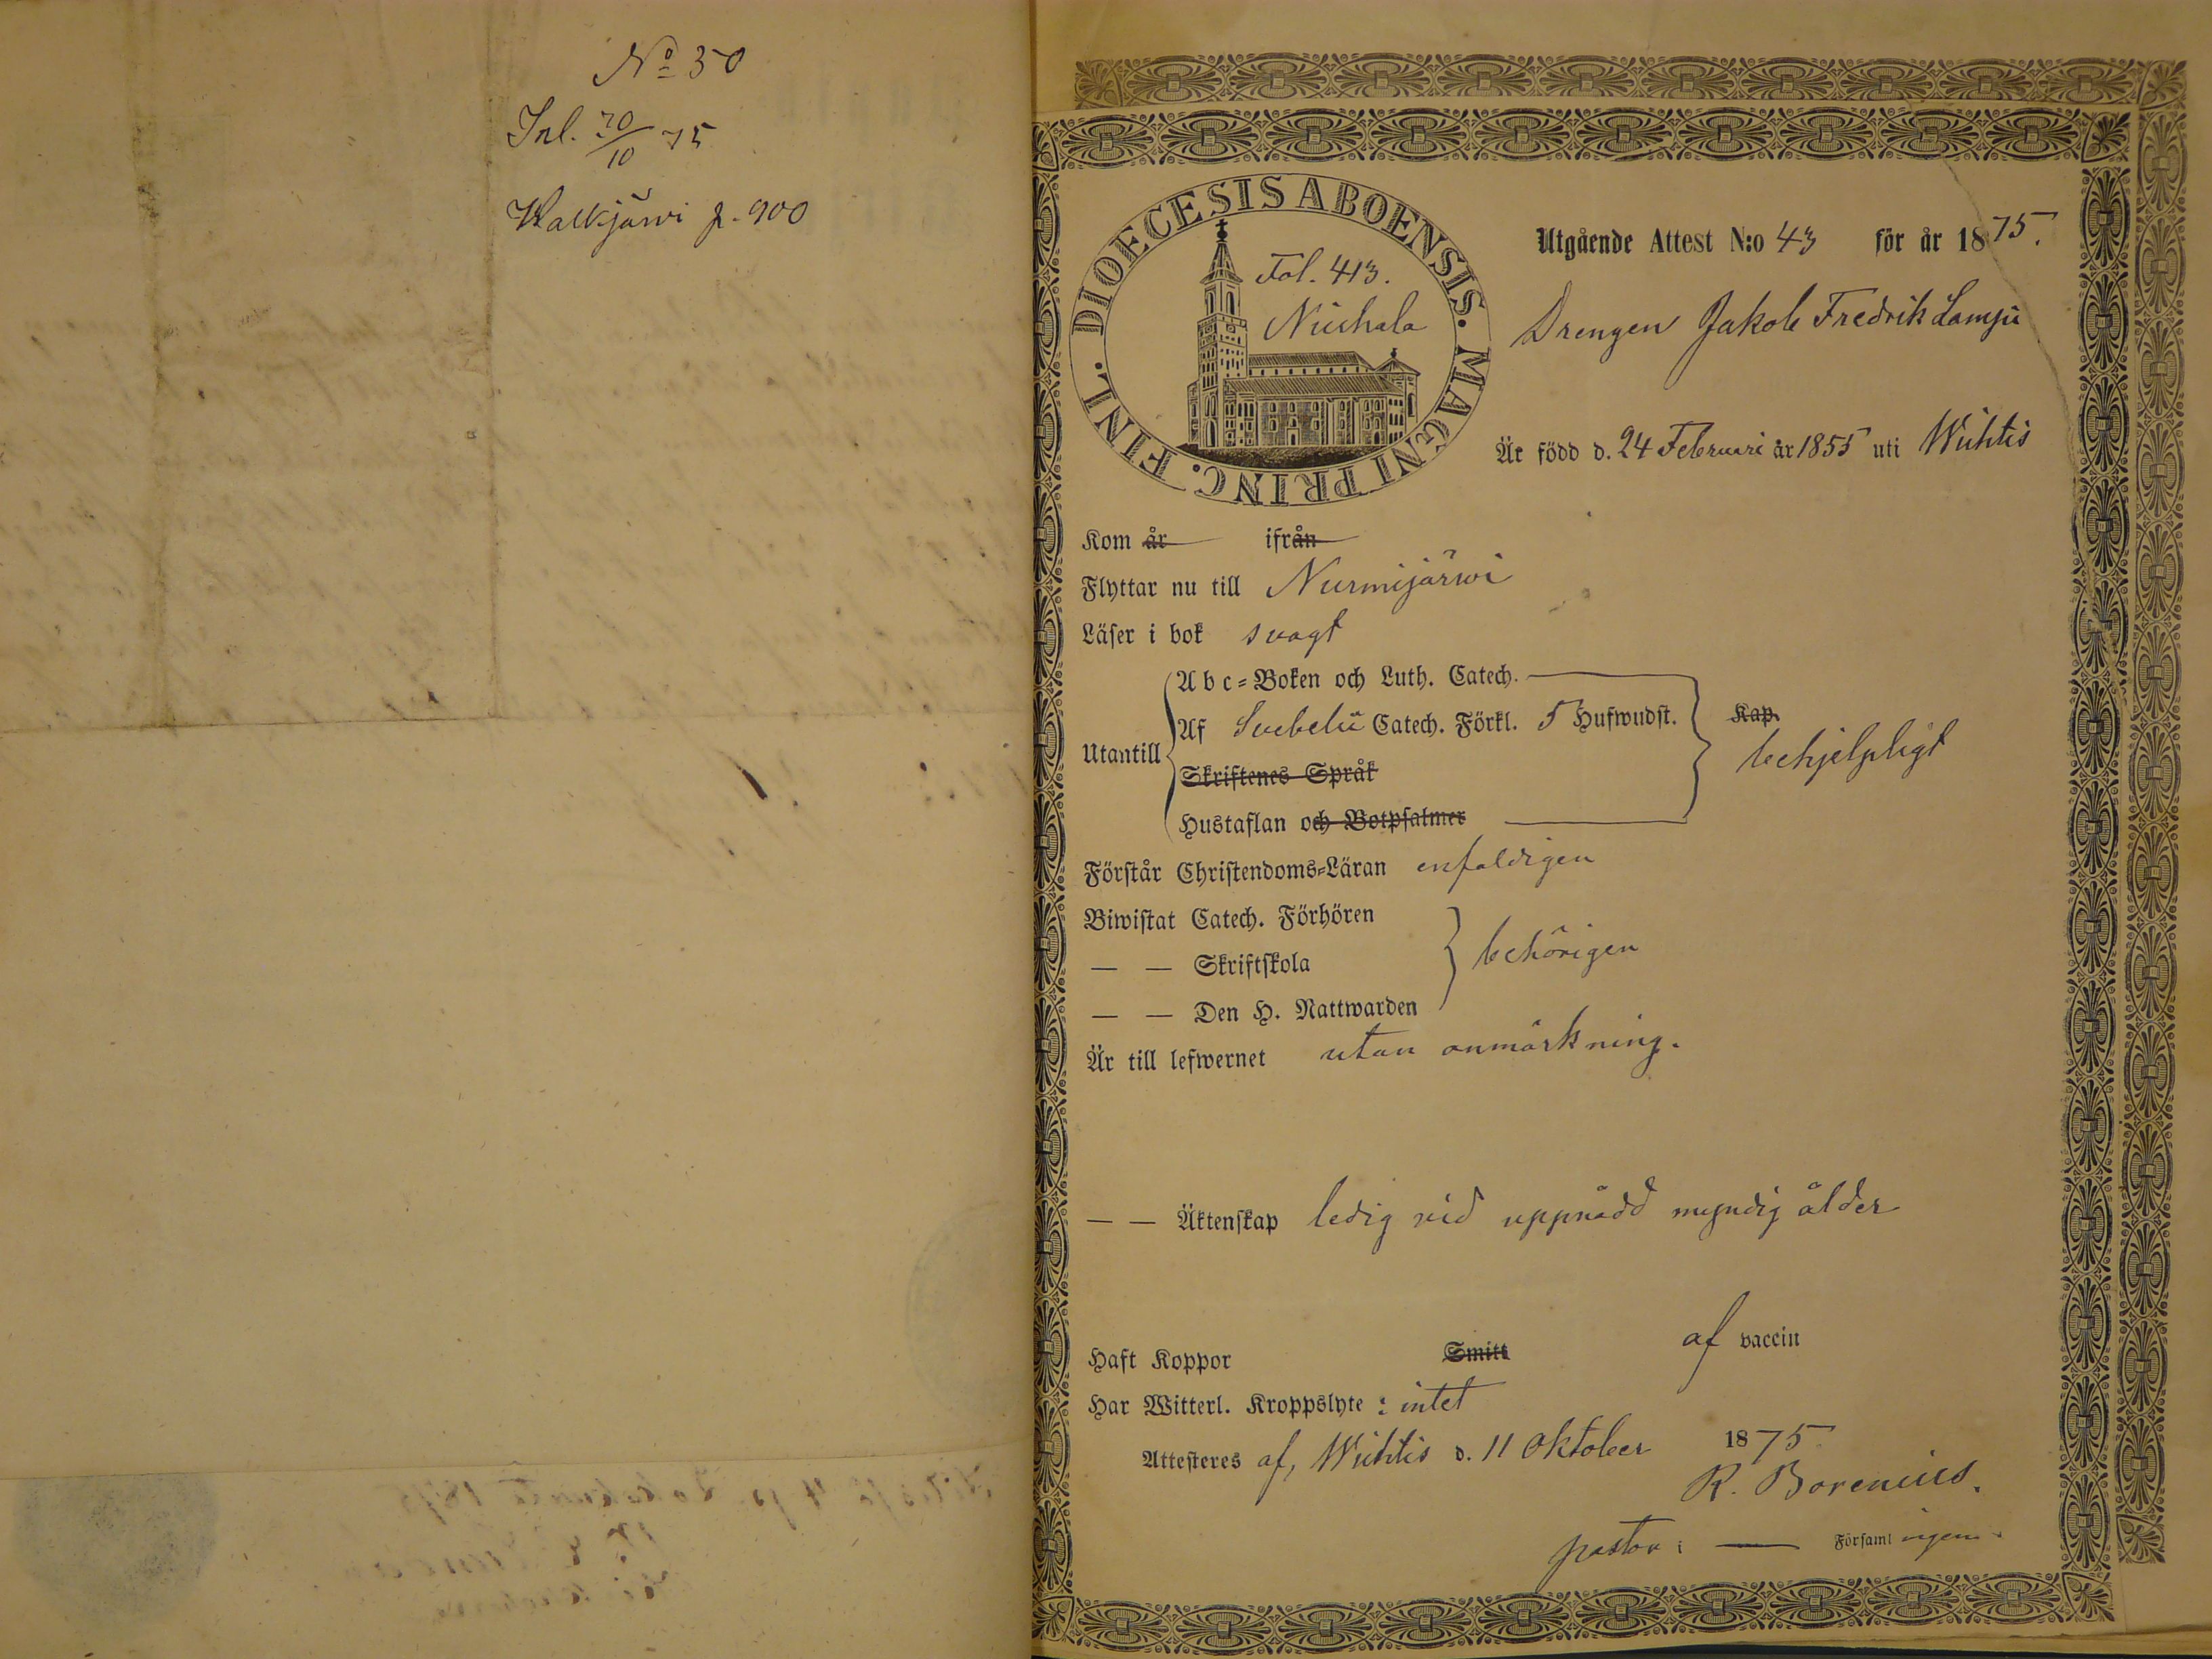 No 30
Inl. 20/10 75
Walkjärwi p. 900
DIOECESIS ABOENSIS. MAGNI PRINC. FINL.
Fol. 413.
Utgående Attest N:o 43 för år 1875.
Drengen Jakob Fredrik
Är född d. 24 Februari år 1855 uti Wichtis
Kom år ifrån
Flyttar nu till Nurmijärwi
Läser i bok svagt
Utantill
Abc-Boken och Luth. Catech.
Af Svebelii Catech. Förkl. 5 Hufwudst. Kap.
behjelpligt
Skriftenes Språk
Hustaflan och Botpsalmer
Förstår Christendoms-Läran enfaldigen
Biwistat Catech. Förhören
— — Skriftskola behörigen
— — Den H. Nattwarden
Är till lefwernet utan anmärkning.
— — Äktenskap ledig vid uppnådd myndig ålder
Haft Koppor Smitt af vaccin
Har Witterl. Kroppslyte : intet
Attesteres af, Wichtis d. 11 Oktober 1875.
R. Borenius.
pastor i — Församlingen.